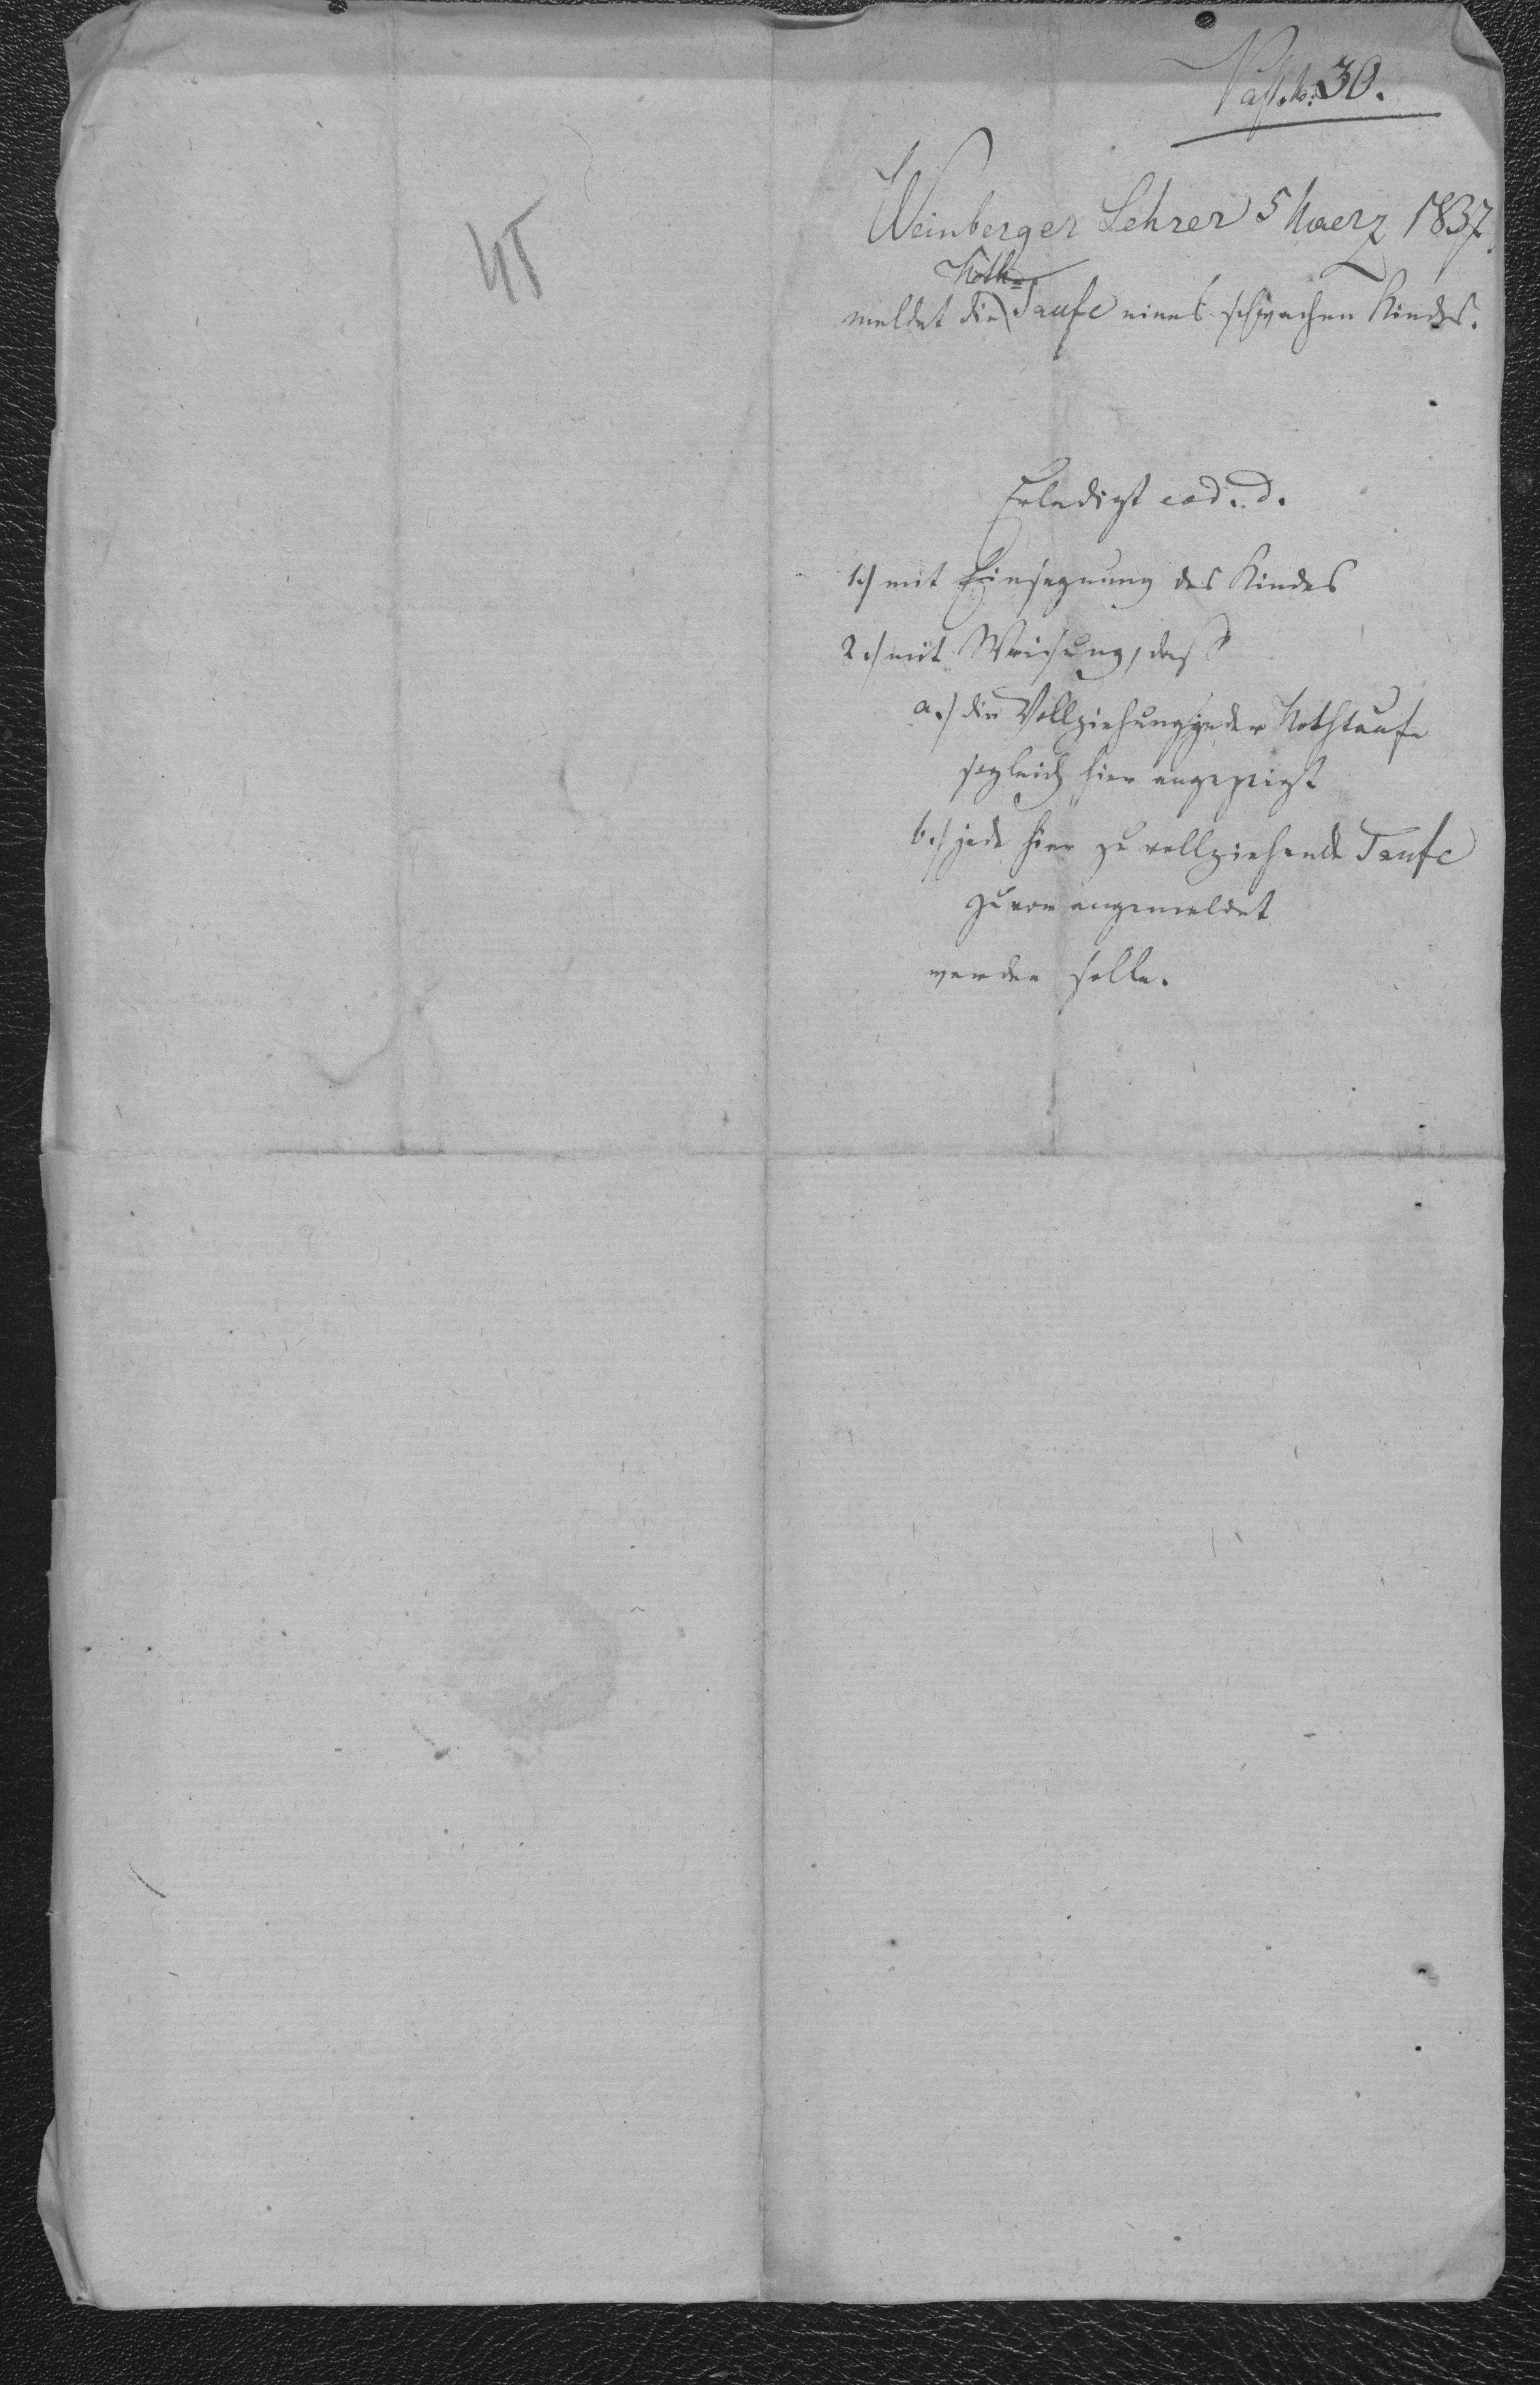 Past. b. 30.
45
Weinberger Lehrer 5 Maerz 1837.
Noth=
meldet die Taufe eines schwachen Kindes.
Erledigt eod. d.
1./ mit Einsegnung des Kindes
2./ mit Weisung, daß
a./ die Vollziehung jeder Nothtaufe
sogleich hier angezeigt
b./ jede hier zu vollziehende Taufe
zuvor angemeldet
werden solle.